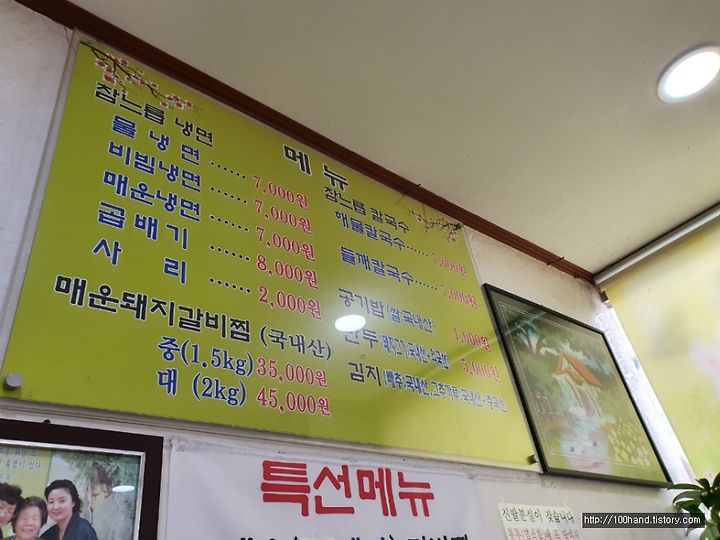 메뉴
참느릅 냉면
물냉면 ...... 7,000원
비빔냉면 ...... 7,000원
매운냉면 ...... 7,000원
곱배기 ...... 8,000원
사 리 ...... 2,000원
매운돼지갈비찜 (국내산)
중(1.5kg) 35,000원
대 (2kg) 45,000원
참느릅 칼국수
해물칼국수...... 7,000원
들깨칼국수...... 7,000원
공기밥(쌀국내산) 1,000원
만두 5,000원
김치 (배추:국내산,고추가루:국내산
특선메뉴
신발분실이 잦습니다
http://100hand.tistory.com